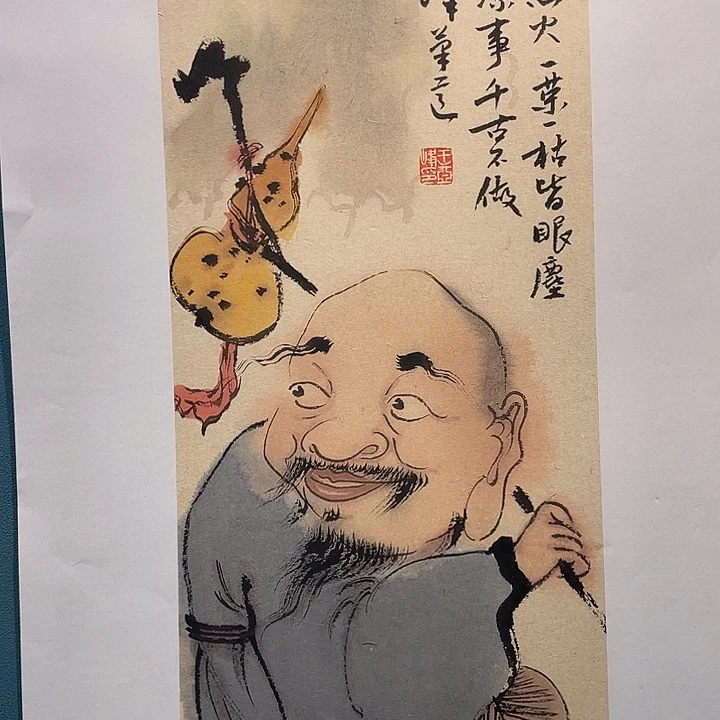 火一葉一枯皆眼塵
事千古不做
筆
王亞